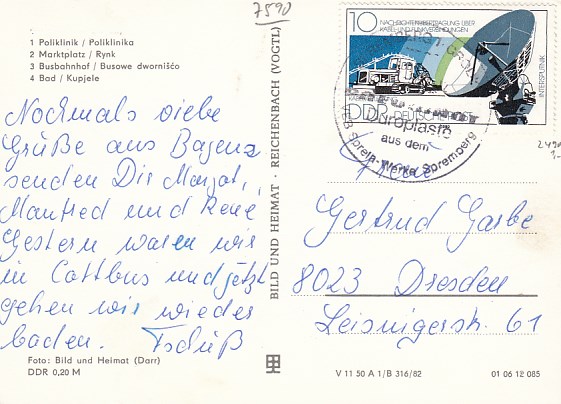 7590
1 Poliklinik / Poliklinika
2 Marktplatz / Rynk
3 Busbahnhof / Busowe dwornišćo
4 Bad / Kupjele
Nochmals viebe
Grüße aus Bagenz
senden Dir Margot,
Manfred und René
Gestern waren wir
in Cottbus und jetzt
gehen wir wieder
baden. Tschüß
Foto: Bild und Heimat (Darr)
DDR 0,20 M
BILD UND HEIMAT · REICHENBACH (VOGTL)
10
NACHRICHTENÜBERTRAGUNG ÜBER
KABEL-UND FUNKVERBINDUNGEN
INTERSPUTNIK
DDR
Duroplaste
aus dem
VEB Sprela-Werke Spremberg
Frau
Gertrud Garbe
8023 Dresden
Leisnigerstr. 61
V 11 50 A 1/B 316/82
01 06 12 085